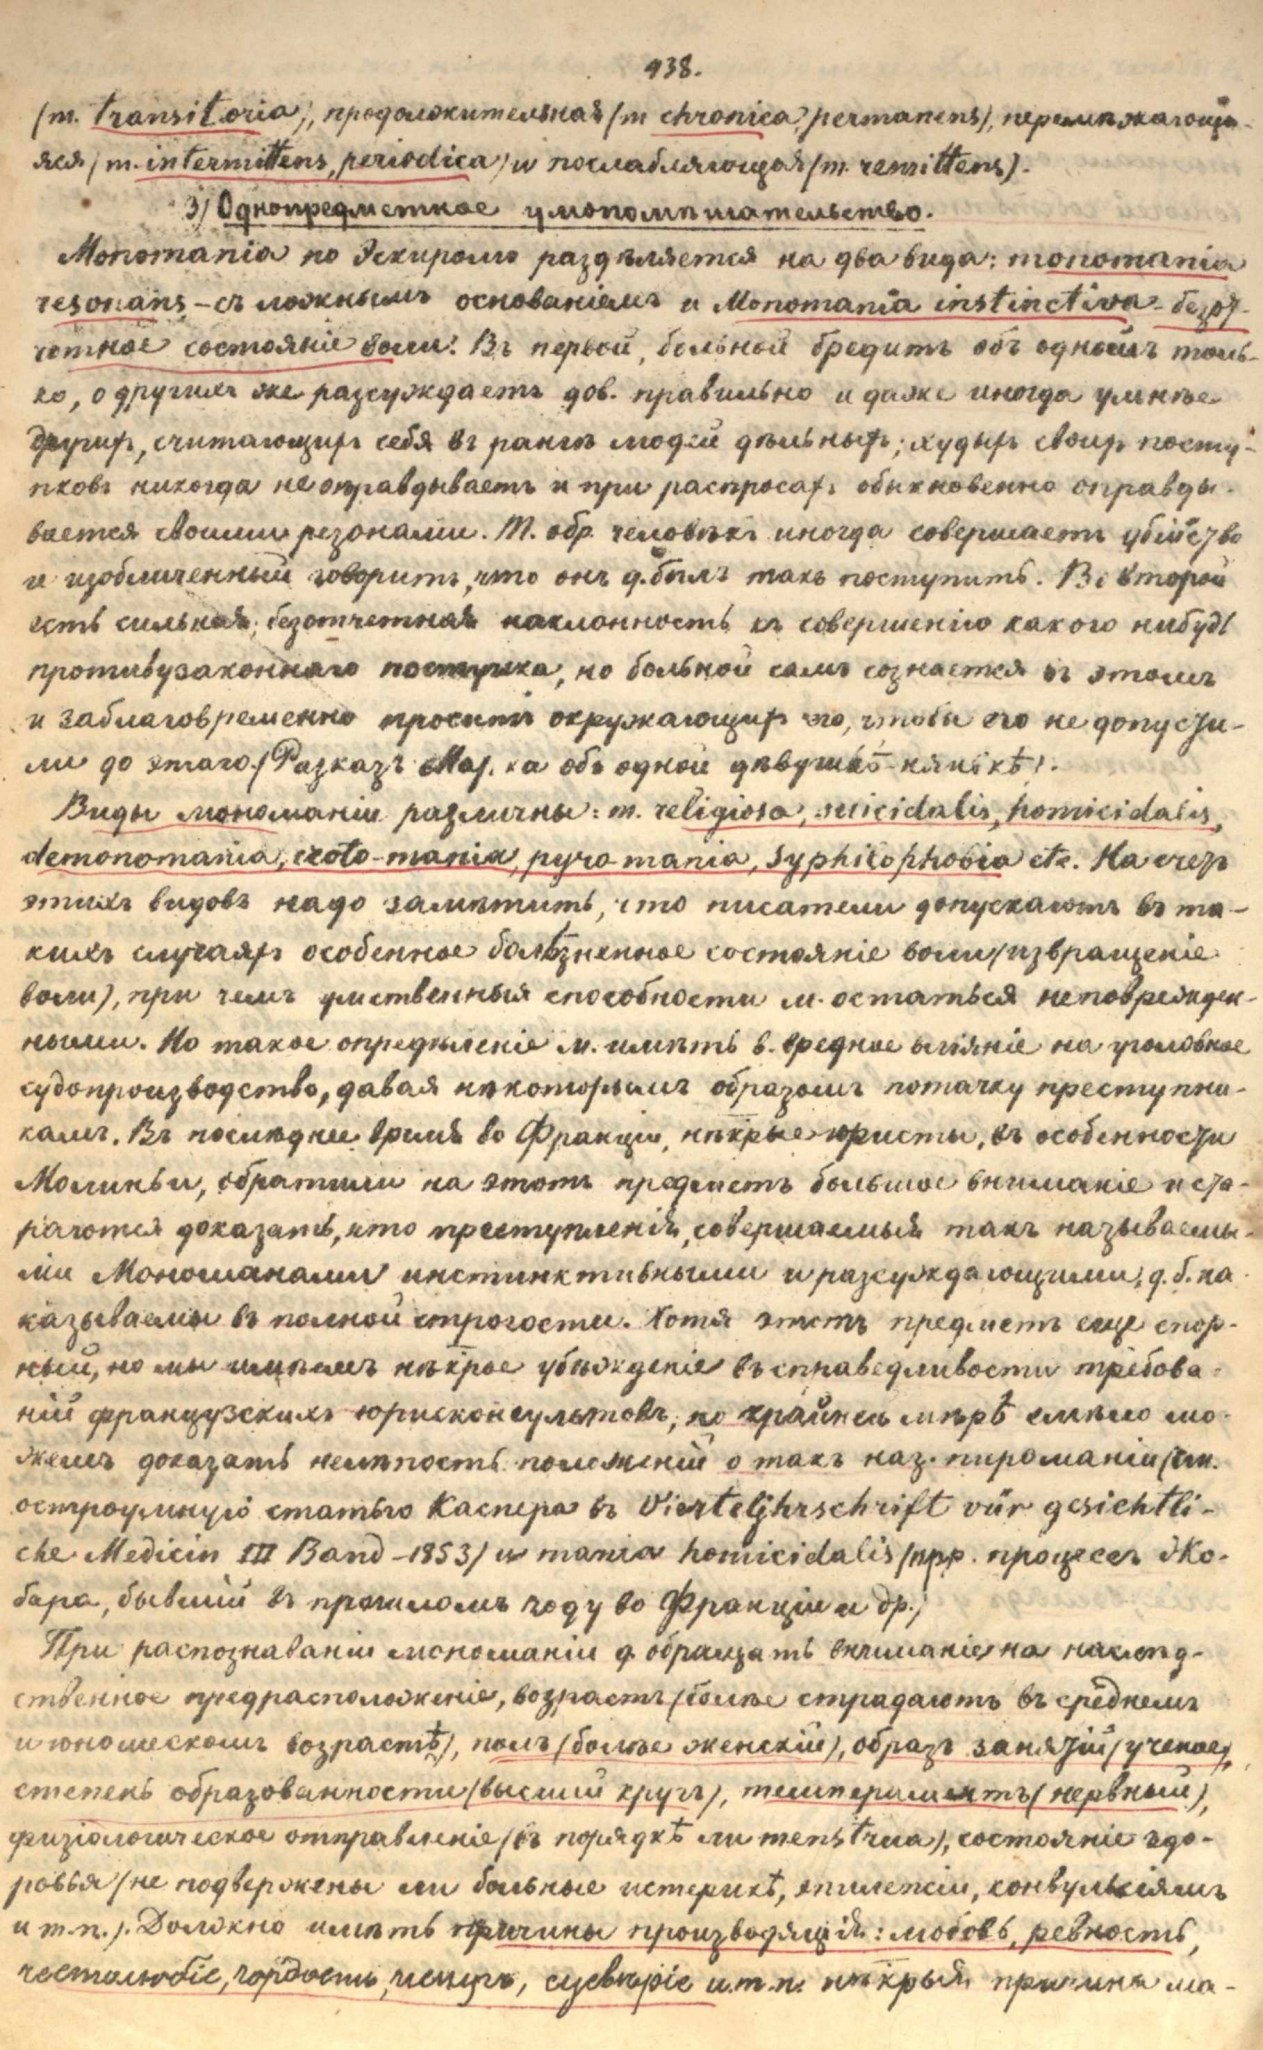 438.
(m. transitoria), продолжительная (m chronica, permanens), перемѣжающа-
яся (m. intermittens, periodica) и послабляющая (m. remittens).
3) Однопредметное умопомѣшательство.
Monomania по Эскиролю раздѣляется на два вида: monomania
resonans, - съ ложнымъ основаніемъ и Monomania instinctiva - безот-
четное состояніе воли. Въ первой, больной бредитъ объ одномъ толь-
ко, о другихъ же разсуждаетъ дов. правильно и даже иногда умнѣе
другихъ, считающихъ себя въ рангѣ людей дѣльныхъ; худыхъ своихъ посту-
пковъ никогда не оправдываетъ и при распросахъ обыкновенно оправды-
вается своими резонами. Т. обр. человѣкъ иногда совершаетъ убійство
и изобличенный говоритъ, что онъ д. былъ такъ поступить. Во второй
есть сильная, безотчетная наклонность къ совершенію какого нибудь
противузаконнаго поступка, но больной самъ сознается въ этомъ
и заблаговременно проситъ окружающихъ его, чтобы его не допусти-
ли до этаго. (Разказъ Мар.ка объ одной дѣвушкѣ-нянькѣ).
Виды мономаніи различны: m. religiosa, suicidalis, homicidalis,
demonomania, eroto-mania, pyro-mania, syphilophobia etc. На счетъ
этихъ видовъ надо замѣтить, что писатели допускаютъ въ та-
кихъ случаяхъ особенное болѣзненное состояніе воли (извращеніе
воли), при чемъ умственныя способности м. остаться неповрежден-
ными. Но такое опредѣленіе м. имѣть в. вредное вліяніе на уголовное
судопроизводство, давая нѣкоторымъ образомъ потачку преступни-
камъ. Въ послѣднее время во Франціи, нѣкрые юристы, въ особенности
Молиньи, обратили на этотъ предметъ большое вниманіе и ста-
раются доказать, что преступленія, совершаемыя такъ называемы-
ми Мономанами инстинктивными и разсуждающими, д. б. на-
казываемы въ полной строгости. Хотя этотъ предметъ еще спор-
ный, но мы имѣемъ нѣкрое убѣжденіе въ справедливости требова-
ній французскихъ юрисконсультовъ, по крайней мѣрѣ смѣло мо-
жемъ доказать нелѣпость положеній о такъ наз. пироманіи (см.
остроумную статью Каспера въ Vierteljhrschrift vür gesichtli-
che Medicin III Band - 1853) и mania homicidalis (прр. процессъ Жо-
бара, бывшій въ прошломъ году во Франціи и др.)
При распознаваніи мономаніи д. обращать вниманіе на наслѣд-
ственное предрасположеніе, возрастъ (болѣе страдаютъ въ среднемъ
и юношескомъ возрастѣ), полъ (болѣе женскій), образъ занятій (ученое),
степень образованности (высшій кругъ), темпераментъ (нервный),
физіологическое отправленіе (въ порядкѣ ли menstrua), состояніе здо-
ровья (не подвержены ли больные истерикѣ, эпилепсіи, конвульсіямъ
и т.п.). Должно имѣть причины производящія: любовь, ревность,
честолюбіе, гордость, суевѣріе и.т.п. нѣкрыя причины ма-